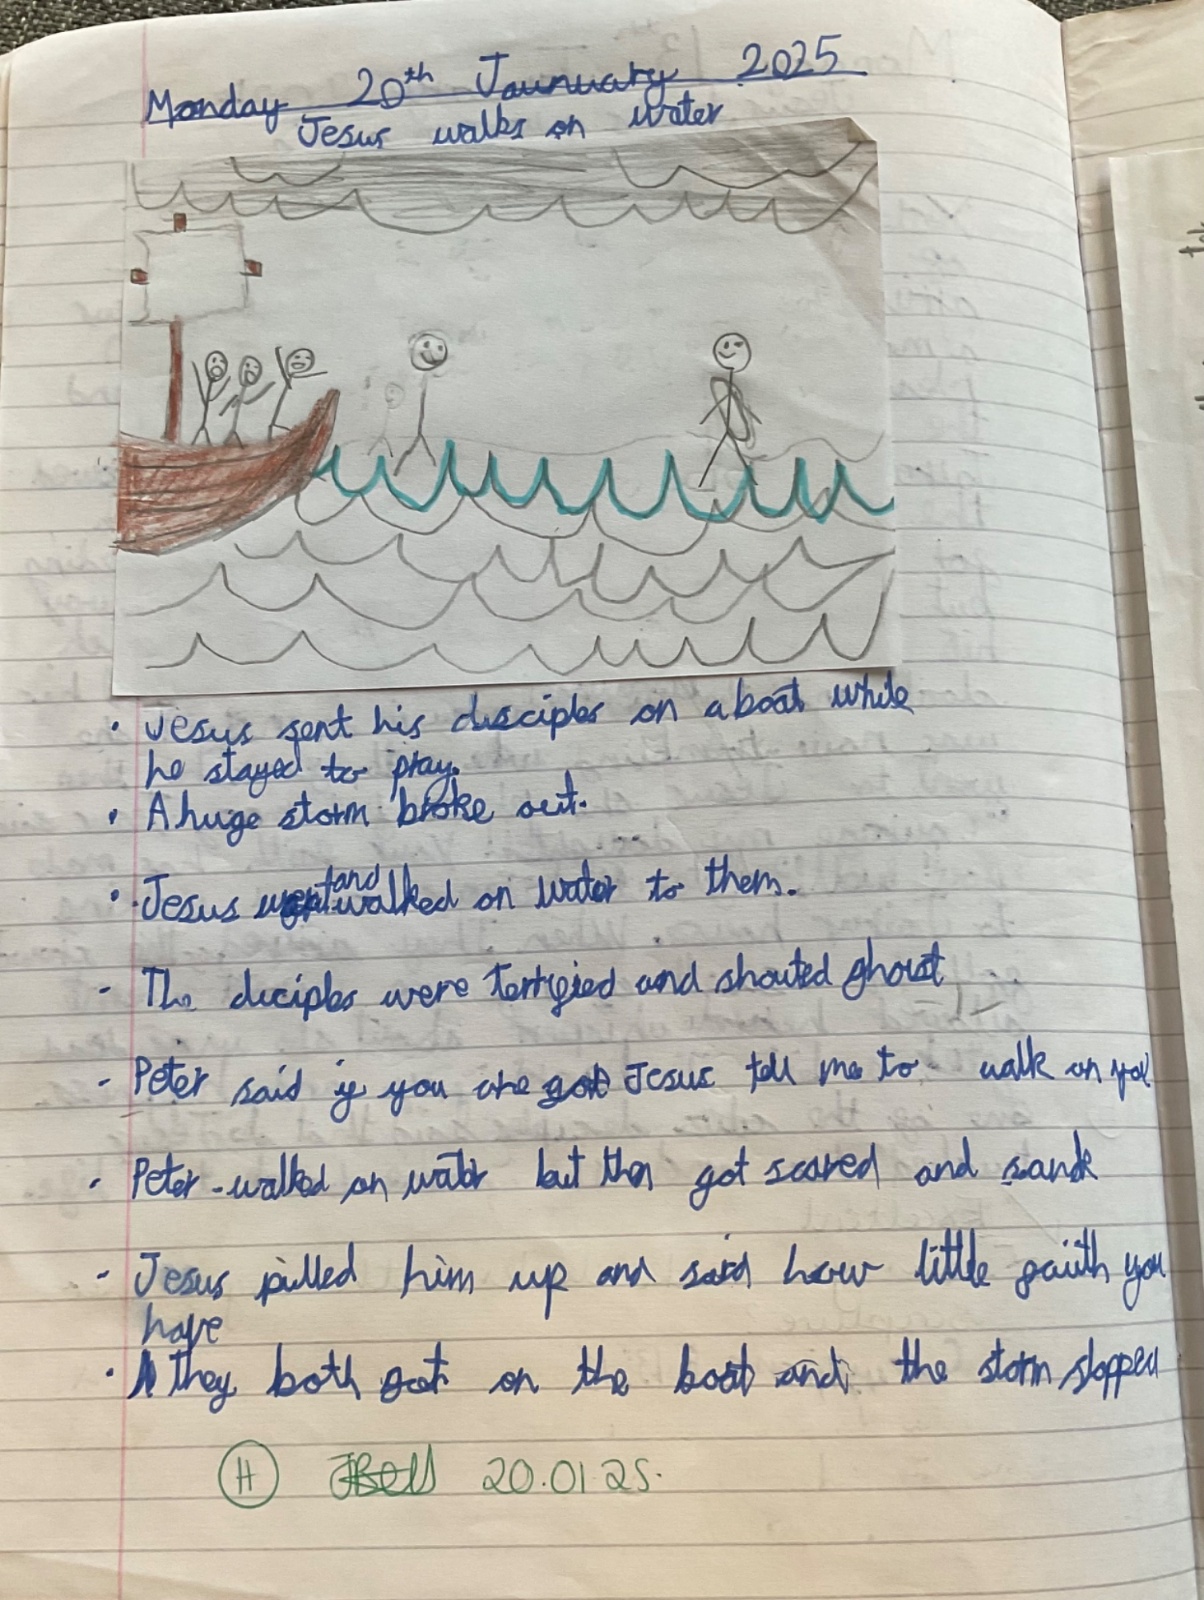 Monday 20th Jaunuary 2025
Jesus walks on water
• Jesus sent his disciples on a boat while
he stayed to pray.
• A huge storm broke out.
• Jesus went and walked on water to them.
- The diciples were terrified and shouted ghost
- Peter said if you are Jesus tell me to walk on
- Peter walked on water but then got scared and sank
- Jesus pulled him up and said how little faith you
have
• They both got on the boat and the storm stopped
H JBell 20.01.25.